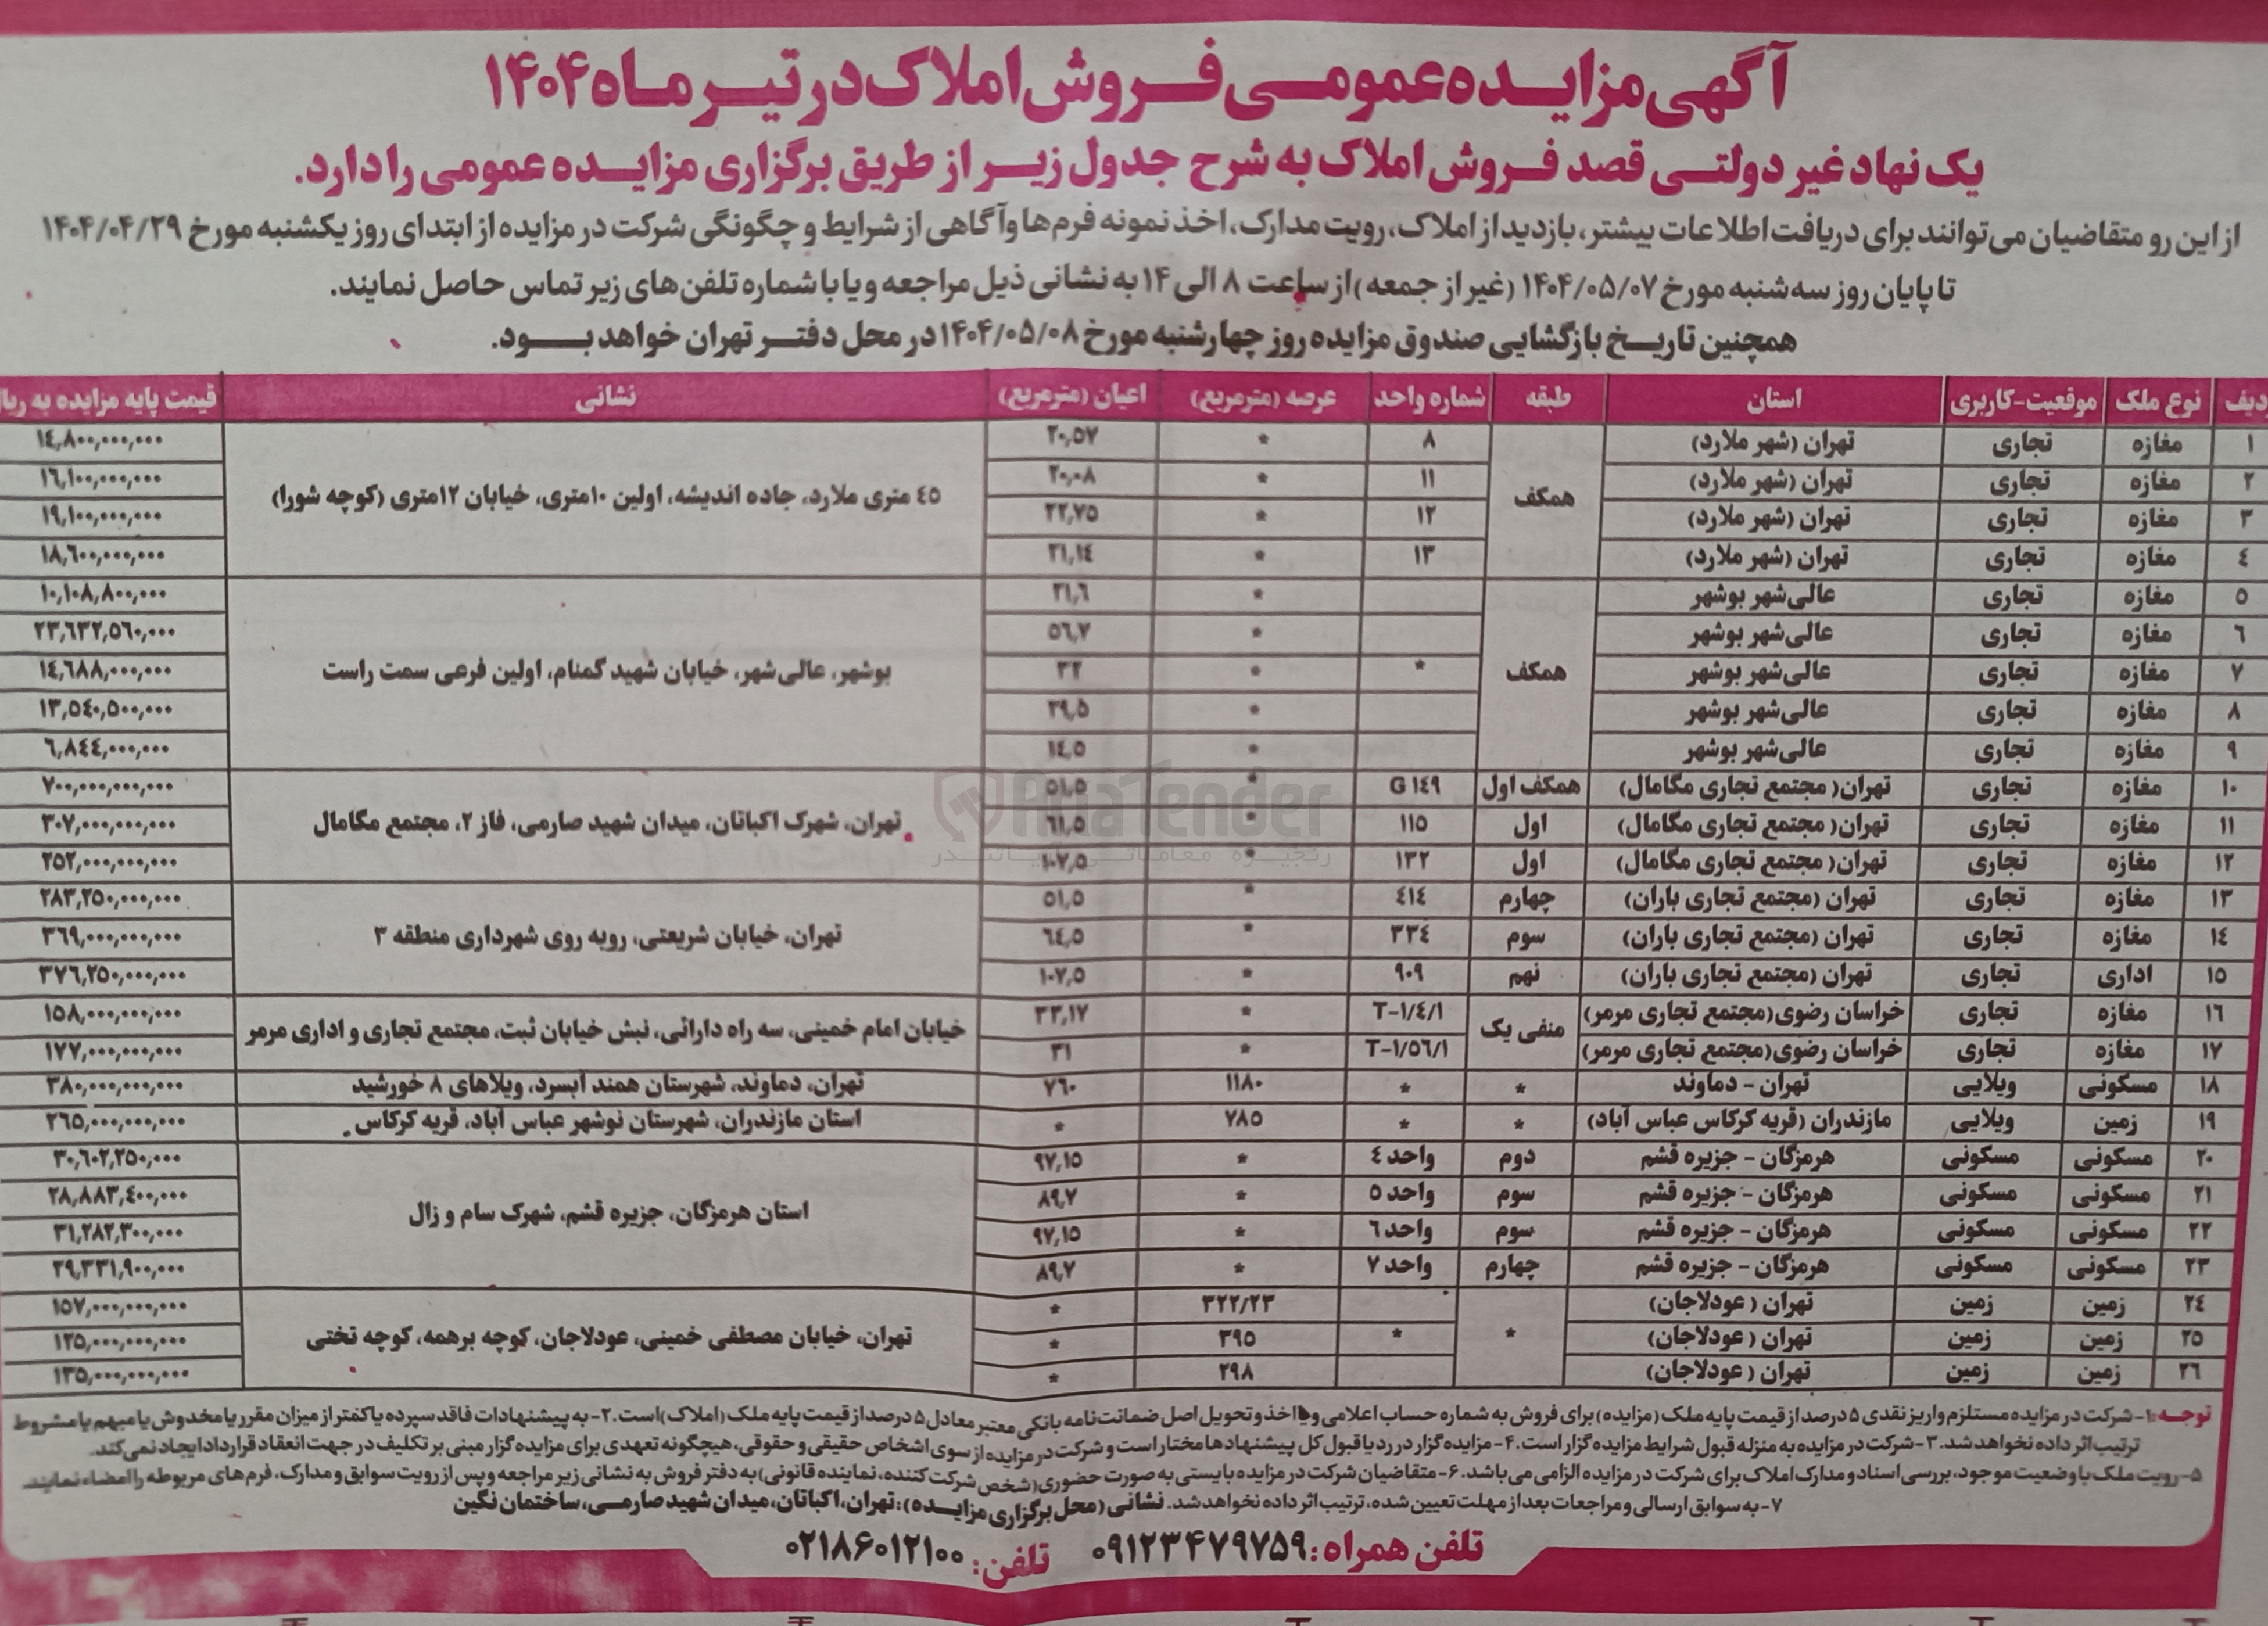 آگهی مزایده عمومی فروش املاک در تیر ماه ۱۴۰۴
یک نهاد غیر دولتی قصد فروش املاک به شرح جدول زیر از طریق برگزاری مزایده عمومی را دارد.
از این رو متقاضیان می‌توانند برای دریافت اطلاعات بیشتر، بازدید از املاک، رویت مدارک، اخذ نمونه فرم ها و آگاهی از شرایط و چگونگی شرکت در مزایده از ابتدای روز یکشنبه مورخ ۱۴۰۴/۰۴/۲۹
تا پایان روز سه شنبه مورخ ۱۴۰۴/۰۵/۰۷ (غیر از جمعه) از ساعت ۸ الی ۱۴ به نشانی ذیل مراجعه و یا با شماره تلفن های زیر تماس حاصل نمایند.
همچنین تاریخ بازگشایی صندوق مزایده روز چهارشنبه مورخ ۱۴۰۴/۰۵/۰۸ در محل دفتر تهران خواهد بود.
ردیف نوع ملک موقعیت-کاربری استان طبقه شماره واحد عرصه (مترمربع) اعیان (مترمربع) نشانی قیمت پایه مزایده به ریال
۱ مغازه تجاری تهران (شهر ملارد) همکف ۸ * ۲۰,۵۷ ۴۵ متری ملارد، جاده اندیشه، اولین ۱۰متری، خیابان ۱۲متری (کوچه شورا) ۱۴,۸۰۰,۰۰۰,۰۰۰
۲ مغازه تجاری تهران (شهر ملارد) ۱۱ * ۲۰,۰۸ ۱۶,۱۰۰,۰۰۰,۰۰۰
۳ مغازه تجاری تهران (شهر ملارد) ۱۲ * ۲۲,۷۵ ۱۹,۱۰۰,۰۰۰,۰۰۰
۴ مغازه تجاری تهران (شهر ملارد) ۱۳ * ۲۱,۱۴ ۱۸,۶۰۰,۰۰۰,۰۰۰
۵ مغازه تجاری عالی‌شهر بوشهر همکف * ۲۱,۶ بوشهر، عالی‌شهر، خیابان شهید گمنام، اولین فرعی سمت راست ۱۰,۱۰۸,۸۰۰,۰۰۰
۶ مغازه تجاری عالی‌شهر بوشهر * ۵۶,۷ ۲۳,۶۳۲,۵۶۰,۰۰۰
۷ مغازه تجاری عالی‌شهر بوشهر * * ۳۲ ۱۴,۶۸۸,۰۰۰,۰۰۰
۸ مغازه تجاری عالی‌شهر بوشهر * ۲۹,۵ ۱۳,۵۴۰,۵۰۰,۰۰۰
۹ مغازه تجاری عالی‌شهر بوشهر * ۱۴,۵ ۶,۸۴۴,۰۰۰,۰۰۰
۱۰ مغازه تجاری تهران( مجتمع تجاری مگامال) همکف اول G ۱۴۹ * ۵۱,۵ تهران، شهرک اکباتان، میدان شهید صارمی، فاز ۲، مجتمع مگامال ۷۰۰,۰۰۰,۰۰۰,۰۰۰
۱۱ مغازه تجاری تهران( مجتمع تجاری مگامال) اول ۱۱۵ * ۶۱,۵ ۳۰۷,۰۰۰,۰۰۰,۰۰۰
۱۲ مغازه تجاری تهران( مجتمع تجاری مگامال) اول ۱۳۲ * ۱۰۷,۵ ۲۵۲,۰۰۰,۰۰۰,۰۰۰
۱۳ مغازه تجاری تهران (مجتمع تجاری باران) چهارم ۴۱۴ * ۵۱,۵ تهران، خیابان شریعتی، روبه روی شهرداری منطقه ۳ ۲۸۳,۲۵۰,۰۰۰,۰۰۰
۱۴ مغازه تجاری تهران (مجتمع تجاری باران) سوم ۳۳۴ * ۶۴,۵ ۳۶۹,۰۰۰,۰۰۰,۰۰۰
۱۵ اداری تجاری تهران (مجتمع تجاری باران) نهم ۹۰۹ * ۱۰۷,۵ ۳۷۶,۲۵۰,۰۰۰,۰۰۰
۱۶ مغازه تجاری خراسان رضوی(مجتمع تجاری مرمر) منفی یک T-۱/۴/۱ * ۳۳,۱۷ خیابان امام خمینی، سه راه دارائی، نبش خیابان ثبت، مجتمع تجاری و اداری مرمر ۱۵۸,۰۰۰,۰۰۰,۰۰۰
۱۷ مغازه تجاری خراسان رضوی(مجتمع تجاری مرمر) T-۱/۵۶/۱ * ۳۱ ۱۷۷,۰۰۰,۰۰۰,۰۰۰
۱۸ مسکونی ویلایی تهران - دماوند * * ۱۱۸۰ ۷۶۰ تهران، دماوند، شهرستان همند آبسرد، ویلاهای ۸ خورشید ۳۸۰,۰۰۰,۰۰۰,۰۰۰
۱۹ زمین ویلایی مازندران (قریه کرکاس عباس آباد) * * ۷۸۵ * استان مازندران، شهرستان نوشهر عباس آباد، قریه کرکاس ۲۶۵,۰۰۰,۰۰۰,۰۰۰
۲۰ مسکونی مسکونی هرمزگان - جزیره قشم دوم واحد ۴ * ۹۷,۱۵ استان هرمزگان، جزیره قشم، شهرک سام و زال ۳۰,۶۰۲,۲۵۰,۰۰۰
۲۱ مسکونی مسکونی هرمزگان - جزیره قشم سوم واحد ۵ * ۸۹,۷ ۲۸,۸۸۳,۴۰۰,۰۰۰
۲۲ مسکونی مسکونی هرمزگان - جزیره قشم سوم واحد ۶ * ۹۷,۱۵ ۳۱,۲۸۲,۳۰۰,۰۰۰
۲۳ مسکونی مسکونی هرمزگان - جزیره قشم چهارم واحد ۷ * ۸۹,۷ ۲۹,۳۳۱,۹۰۰,۰۰۰
۲۴ زمین زمین تهران ( عودلاجان) * ۳۲۲/۲۳ * تهران، خیابان مصطفی خمینی، عودلاجان، کوچه برهمه، کوچه تختی ۱۵۷,۰۰۰,۰۰۰,۰۰۰
۲۵ زمین زمین تهران ( عودلاجان) * ۳۹۵ * ۱۲۵,۰۰۰,۰۰۰,۰۰۰
۲۶ زمین زمین تهران ( عودلاجان) ۲۹۸ * ۱۳۵,۰۰۰,۰۰۰,۰۰۰
توجه: ۱- شرکت در مزایده مستلزم واریز نقدی ۵ درصد از قیمت پایه ملک (مزایده) برای فروش به شماره حساب اعلامی و یا اخذ و تحویل اصل ضمانت نامه بانکی معتبر معادل ۵ درصد از قیمت پایه ملک (املاک) است. ۲- به پیشنهادات فاقد سپرده یا کمتر از میزان مقرر یا مخدوش یا مبهم یا مشروط
ترتیب اثر داده نخواهد شد. ۳- شرکت در مزایده به منزله قبول شرایط مزایده گزار است. ۴- مزایده گزار در رد یا قبول کل پیشنهادها مختار است و شرکت در مزایده از سوی اشخاص حقیقی و حقوقی، هیچگونه تعهدی برای مزایده گزار مبنی بر تکلیف در جهت انعقاد قرارداد ایجاد نمی کند.
۵- رویت ملک با وضعیت موجود، بررسی اسناد و مدارک املاک برای شرکت در مزایده الزامی می باشد. ۶- متقاضیان شرکت در مزایده بایستی به صورت حضوری (شخص شرکت کننده، نماینده قانونی) به دفتر فروش به نشانی زیر مراجعه و پس از رویت سوابق و مدارک، فرم های مربوطه را امضاء نمایند.
۷- به سوابق ارسالی و مراجعات بعد از مهلت تعیین شده، ترتیب اثر داده نخواهد شد. نشانی (محل برگزاری مزایده): تهران، اکباتان، میدان شهید صارمی، ساختمان نگین
تلفن همراه: ۰۹۱۲۳۴۷۹۷۵۹ تلفن: ۰۲۱۸۶۰۱۲۱۰۰
AriaTender